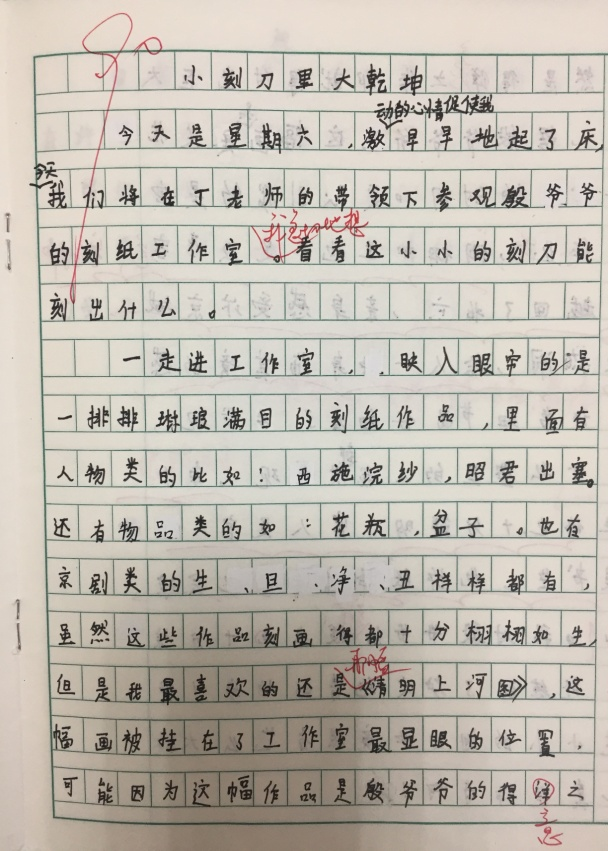 90
小刻刀里大乾坤
动的心情促使我
今天是星期六，激早早地起了床，
今天
我们将在丁老师的带领下参观殷爷爷
的刻纸工作室。看看这小小的刻刀能
刻出什么。
一走进工作室，，映入眼帘的是
一排排琳琅满目的刻纸作品，里面有
人物类的比如：西施浣纱，昭君出塞。
还有物品类的如：花瓶，盆子。也有
京剧类的生、旦、净、丑样样都有，
虽然这些作品刻画得都十分栩栩如生，
但是我最喜欢的还是《清明上河图》，这
幅画被挂在了工作室最显眼的位置，
可能因为这幅作品是殷爷爷的得洋之
意